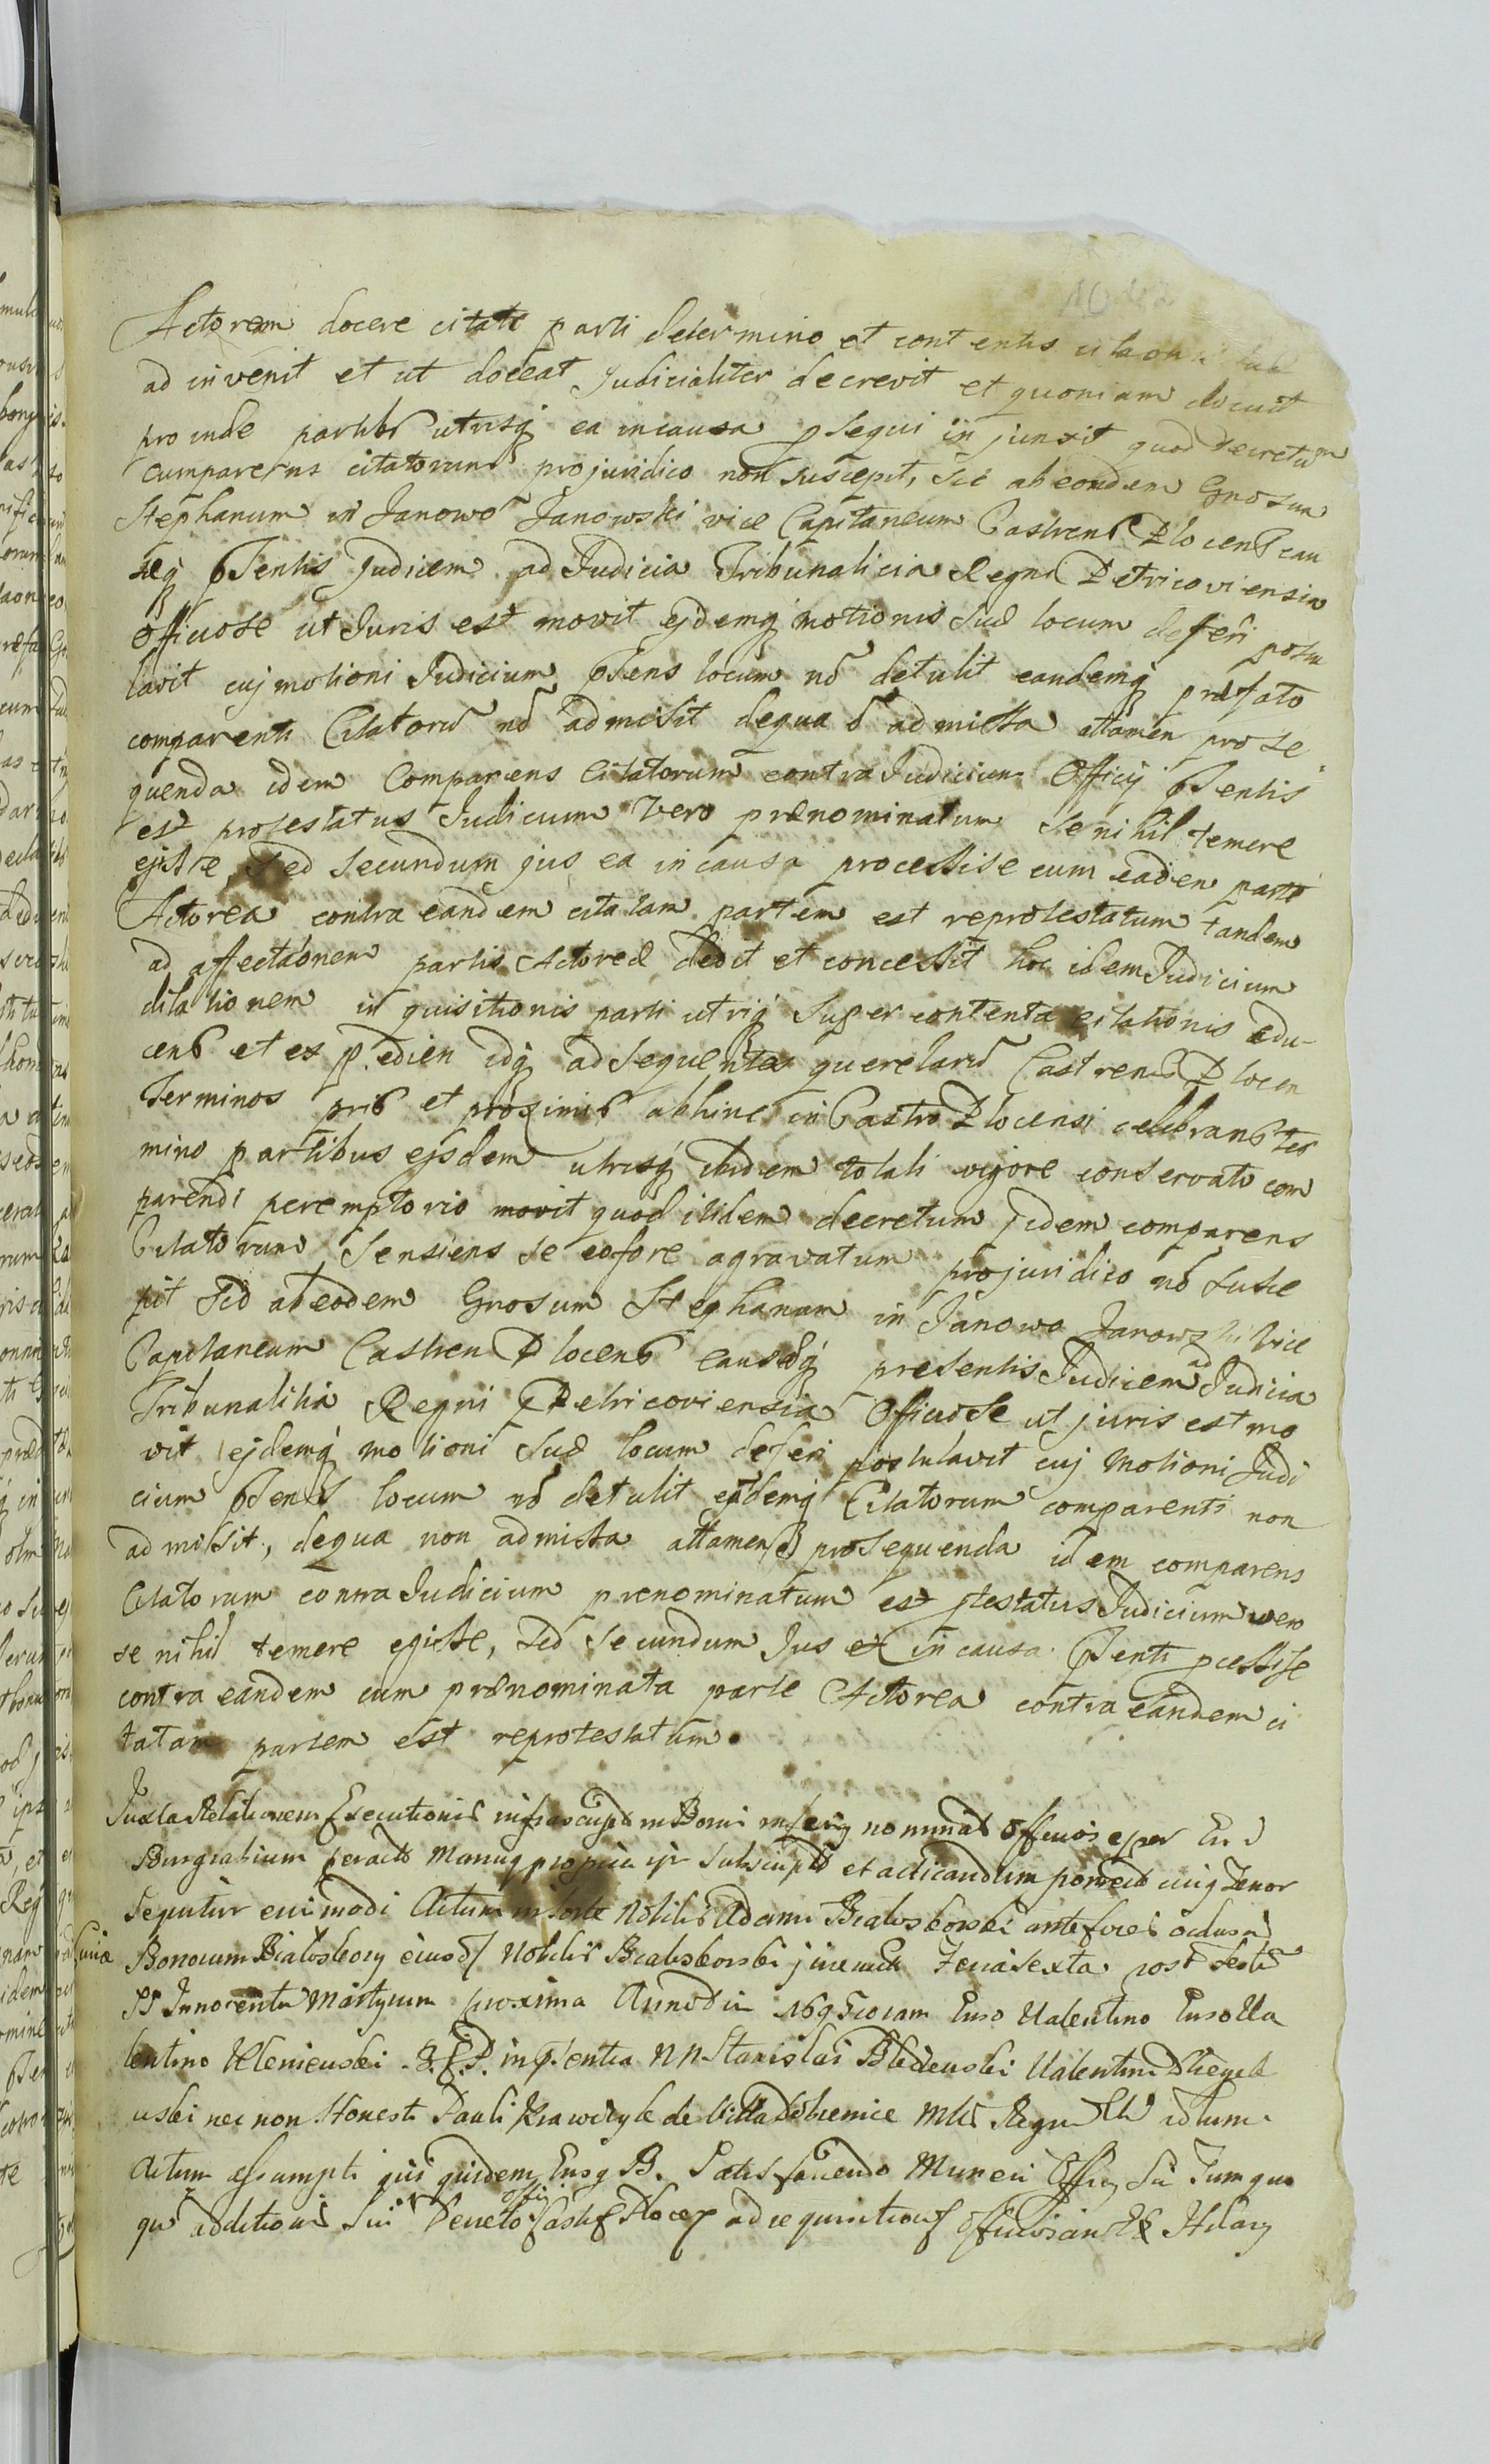 Actorem docere citate parti determino et contentis
ad invenit et ut doceat Judicialiter decrevit et quoniam docuit
pro inde partibs utrisq ea in causa psequi in junxit quod decretum
cumparens citatorum pro juridico non suscepit, sed ab eondem Gnosum
Stephanum in Janowo Janowski vice Capitaneum Castrens Plocens cau
seq psentis Judicem ad Judicia Tribunalicia Regni Petricoviensia
Officiose ut Juris est movit ejdemq motionis suæ locum deferi postu
lavit cuj motioni Judicium psens locum nõ detulit eandemq præfato
comparenti Citatorũ nõ admisit de qua nõ admissa attamen prose
quenda idem Comparens Citatorum contra Judicium Officij psentis
est protestatus Judicium Vero prænominatum se nihil temere
ejisse, sed secundum jus ea in causa processise cum eadem parte
Actorea contra eandem citatam partem est reprotestatum tandem
ad affectãonem partis Actoreæ dedit et concessit hoc idem Judicium
dilationem in quisitionis parti utriq super contenta citationis edu-
cens et ex p. edien idq ad sequentes querelarũ Castrens Plocen
Terminos pris et proximis abhinc in Castro Plocensi celebrans Ter
mino partibus ejsdem utrisq ibidem totali vigore conservato com
parendi peremptorio movit quod itidem decretum jdem comparens
Citatorum Sensiens se eofore agravatum pro juridico nõ susce
pit Sed ab eodem Gnosum Stephanum in Janowo Janowski Vice
Capitaneum Castren Plocens causæq presentis Judicem ad Judicia
Tribunalitia Regni Petricoviensia Officiose ut juris est mo
vit ejdemq motioni suæ locum deferi postulavit cuj Motioni Judi
cium psens locum nõ detulit eãdemq Citatorum comparenti non
admissit, de qua non admissa attamen prosequenda idem comparens
Citatorum contra Judicium prenominatum est ptestatus Judicium vero
se nihil temere egisse, Sed secundum Jus et in causa psenti pcessise
contra eandem cum prænominata parte Actorea contra eandem ci
tatam partem est reprotestatum.
Juxta Relationem Executionis infrascript in Bonis inferiq nominat Officiose per Enũ
Burgrabium peracts Manuq propria ejr Subscripts et acticandum porrects cuiq Tenor
Sequitur eiusmodi Actum in sorte Nobilis Adami Bialoskorski ante fores
Bonorum Bialoskory eiusd Nobilis Bialoskorski Feria sexta post Festũ
SS Innocentũ Martyrum proxima Anno Dni 1695 coram Enso Valentino Enso Va
lentino Kleniewski B.C.P. in psentia NN Stanislai Bledewski Valentini
uski nec non Honesti Pauli Krawczyk de Villa
Actum assumpti qui quidem Ensq B. Satisfaciendo Muneri Officij Sui Tum quo
qu additionis Sui Officij Castr Plocen ad requisitionẽ Hilarij